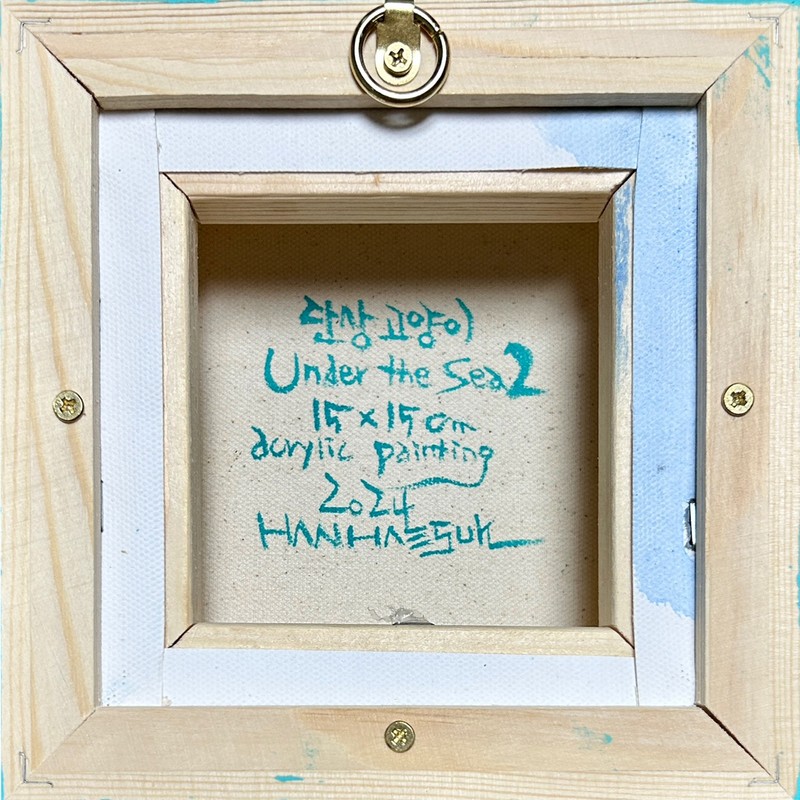 단상고양이
Under the Sea2
15×15cm
acrylic painting
2024
HANHAESUK